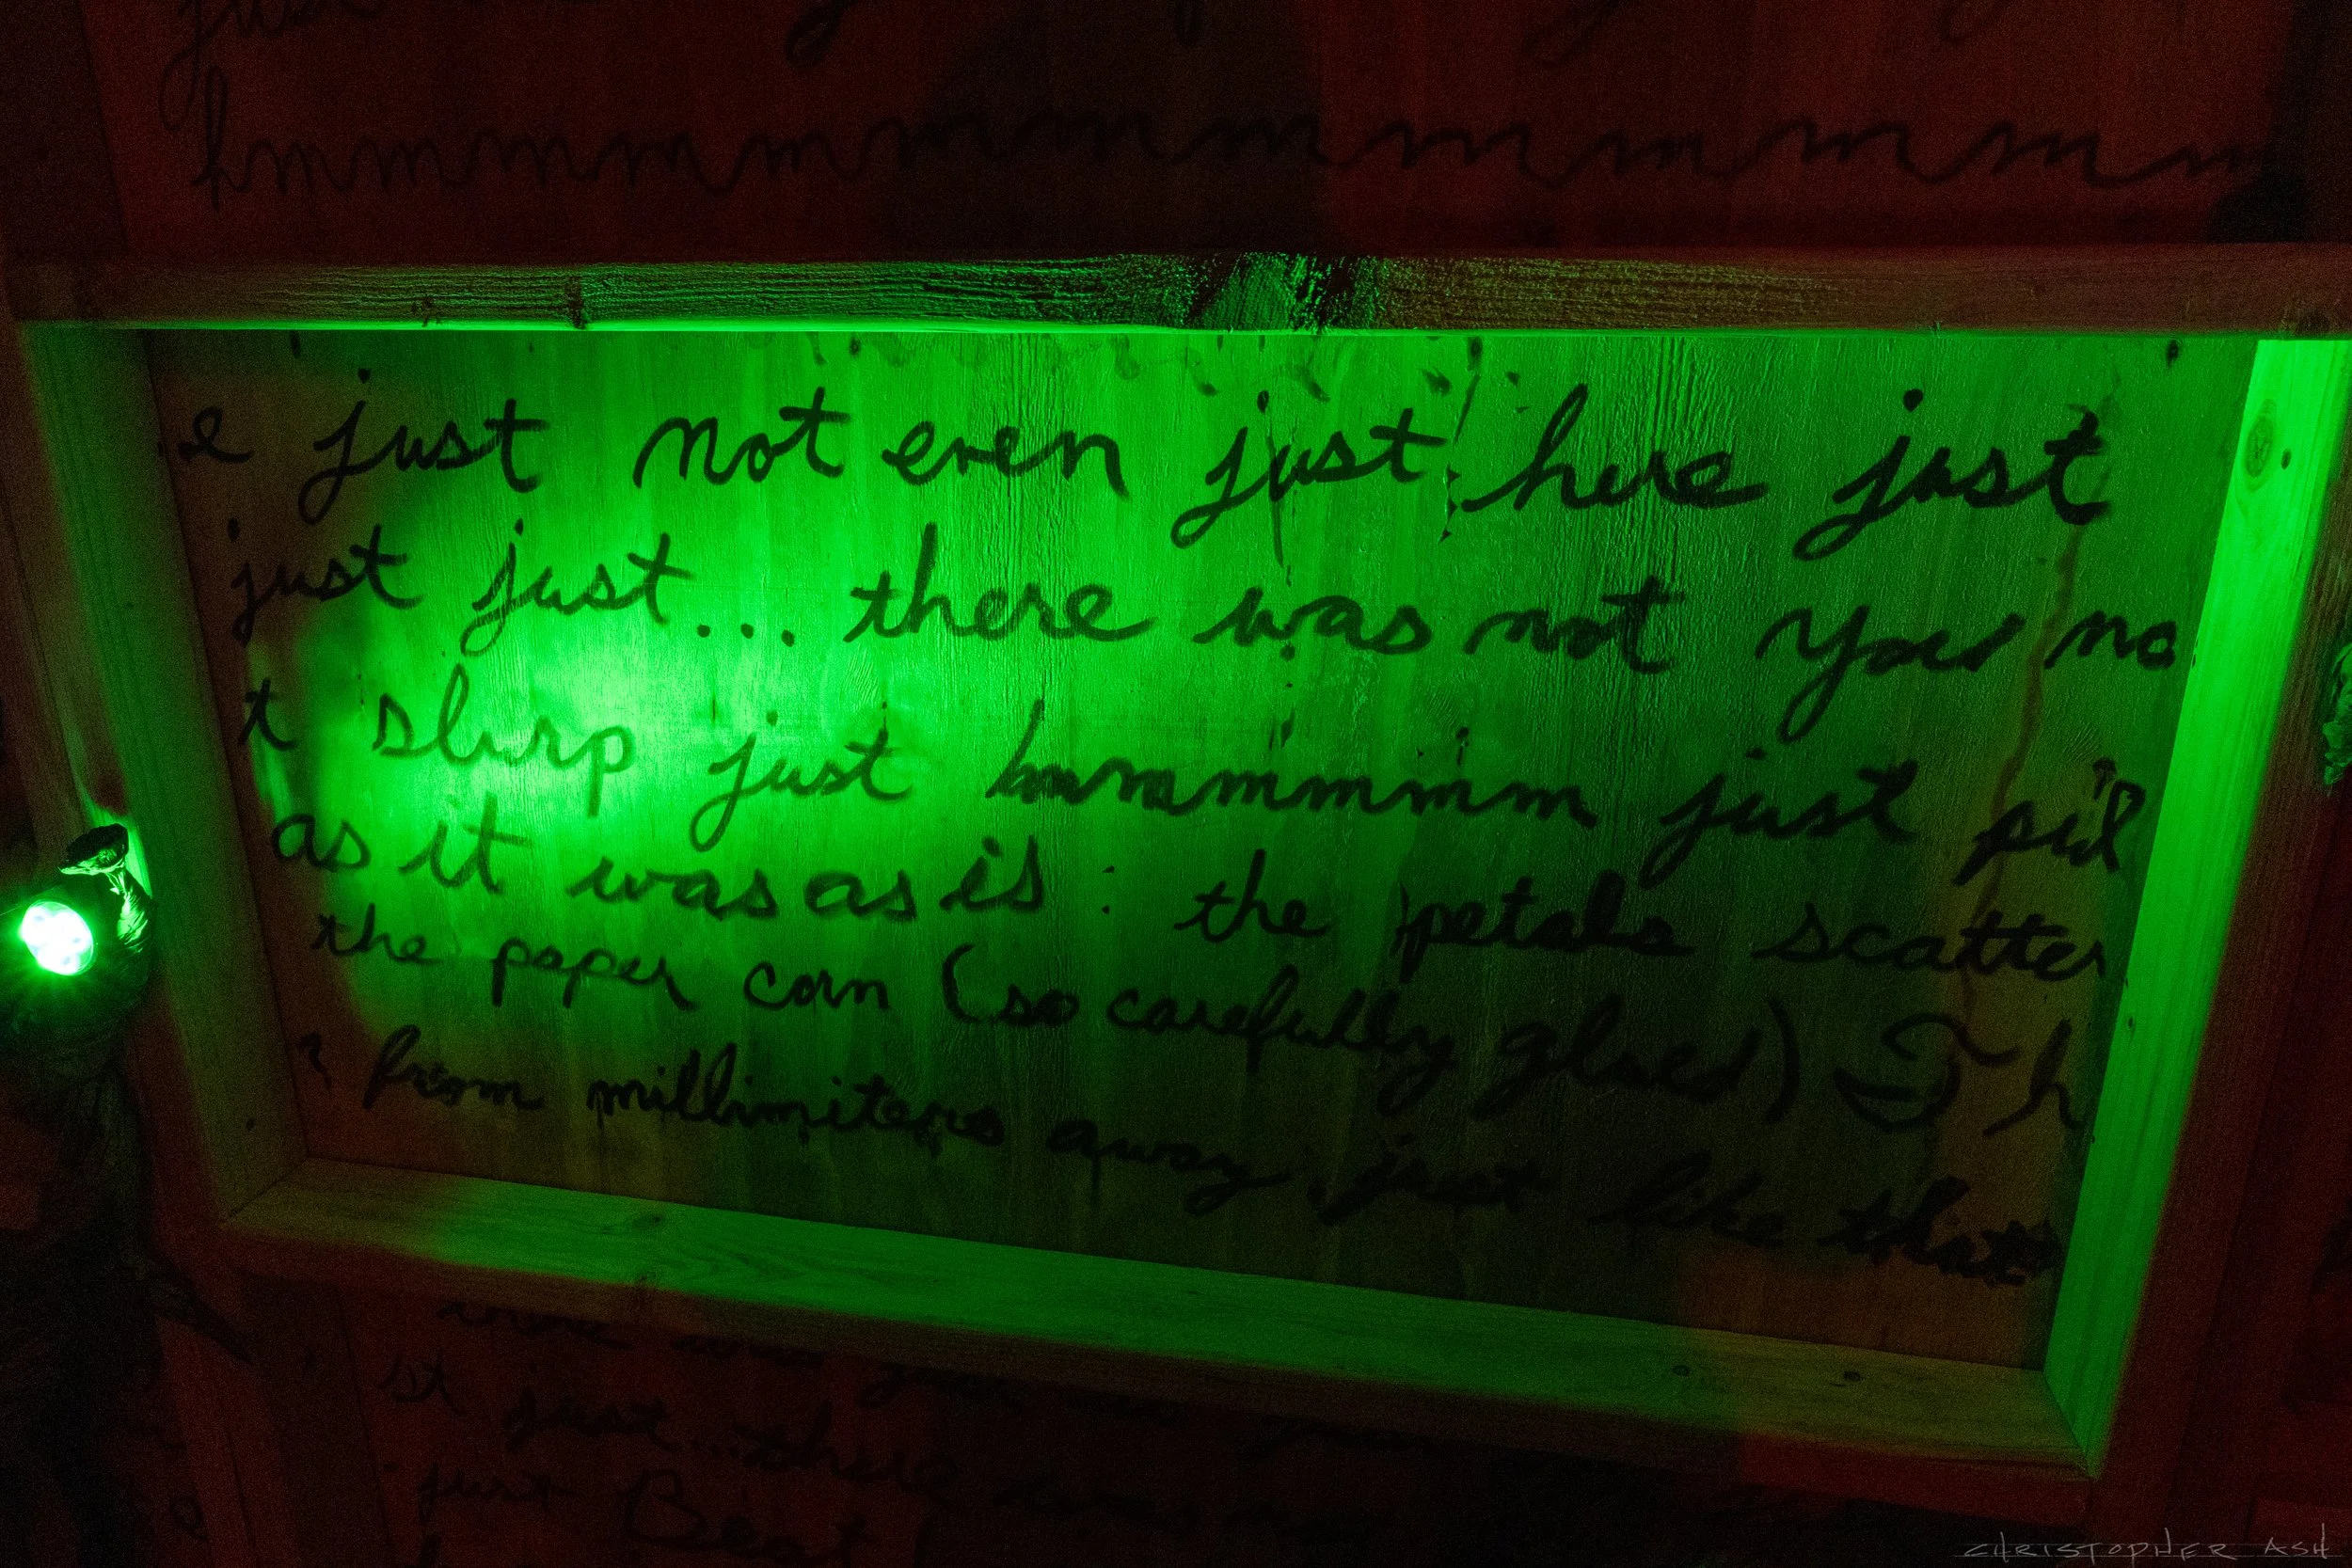 just
hmmmmmmmmmmmm
e just not even just here just
just just... there was not you no
t slurp just hmmmmmmm just
as it was as is : the petals scatter
the paper corn (so carefully glued) Th
from millimiters away just like that
st just... there
just Beat
CHRISTOPHER ASH